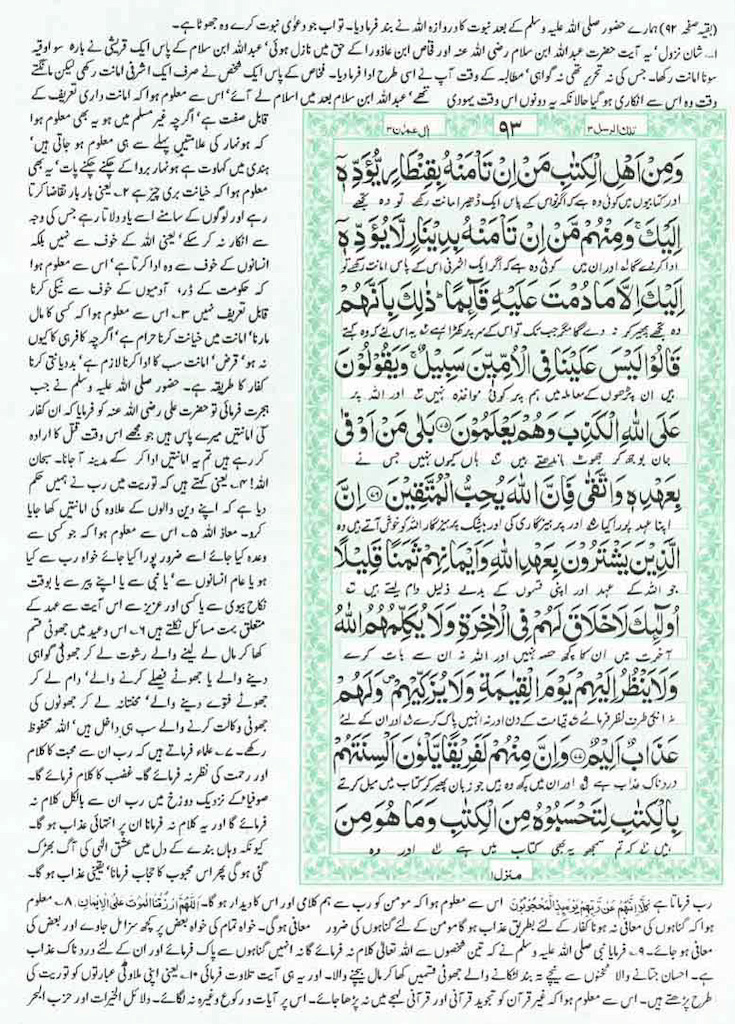 (بقیہ صفحہ ۹۲) ہمارے حضور صلی اللہ علیہ وسلم کے بعد نبوت کا دروازہ اللہ نے بند فرما دیا۔ تو اب جو دعوٰی نبوت کرے وہ جھوٹا ہے۔
۱۔ شان نزول' یہ آیت حضرت عبداللہ ابن سلام رضی اللہ عنہ اور فخاص ابن عاذورا کے حق میں نازل ہوئی' عبداللہ ابن سلام کے پاس ایک قریشی نے بارہ سو اوقیہ
سونا امانت رکھا۔ جس کی نہ تحریر تھی نہ گواہی' مطالبہ کے وقت آپ نے اسی طرح ادا فرما دیا۔ فخاص کے پاس ایک شخص نے صرف ایک اشرفی امانت رکھی لیکن مانگتے
وقت وہ اس سے انکاری ہو گیا حالانکہ یہ دونوں اس وقت یہودی تھے' عبداللہ ابن سلام بعد میں اسلام لے آئے' اس سے معلوم ہوا کہ امانت داری تعریف کے
تلك الرسل ۳
۹۳
اٰل عمرٰن ۳
وَمِنْ اَهْلِ الْكِتٰبِ مَنْ اِنْ تَاْمَنْهُ بِقِنْطَارٍ يُّؤَدِّهٖٓ
اور کتابیوں میں کوئی وہ ہے کہ اگر تو اس کے پاس ایک ڈھیر امانت رکھے تو وہ تجھے
اِلَيْكَ ۚ وَمِنْهُمْ مَّنْ اِنْ تَاْمَنْهُ بِدِيْنَارٍ لَّا يُؤَدِّهٖٓ
ادا کر دے گا اور ان میں کوئی وہ ہے کہ اگر ایک اشرفی اس کے پاس امانت رکھے تو
اِلَيْكَ اِلَّا مَا دُمْتَ عَلَيْهِ قَآئِمًا ؕ ذٰلِكَ بِاَنَّهُمْ
وہ تجھے پھیر کر نہ دے گا مگر جب تک تو اس کے سر پر کھڑا رہے یہ اس لئے کہ وہ کہتے
قَالُوْا لَيْسَ عَلَيْنَا فِی الْاُمِّيّٖنَ سَبِيْلٌ ۚ وَيَقُوْلُوْنَ
ہیں ان پڑھوں کے معاملہ میں ہم پر کوئی مواخذہ نہیں اور اللہ پر
عَلَی اللّٰهِ الْكَذِبَ وَهُمْ يَعْلَمُوْنَ ﴿۷۵﴾ بَلٰی مَنْ اَوْفٰی
جان بوجھ کر جھوٹ باندھتے ہیں ہاں کیوں نہیں جس نے
بِعَهْدِهٖ وَاتَّقٰی فَاِنَّ اللّٰهَ يُحِبُّ الْمُتَّقِيْنَ ﴿۷۶﴾ اِنَّ
اپنا عہد پورا کیا اور پرہیزگاری کی اور بیشک پرہیزگار اللہ کو خوش آتے ہیں وہ
الَّذِيْنَ يَشْتَرُوْنَ بِعَهْدِ اللّٰهِ وَاَيْمَانِهِمْ ثَمَنًا قَلِيْلًا
جو اللہ کے عہد اور اپنی قسموں کے بدلے ذلیل دام لیتے ہیں
اُولٰٓئِكَ لَا خَلَاقَ لَهُمْ فِی الْاٰخِرَةِ وَلَا يُكَلِّمُهُمُ اللّٰهُ
آخرت میں ان کا کچھ حصہ نہیں اور اللہ نہ ان سے بات کرے
وَلَا يَنْظُرُ اِلَيْهِمْ يَوْمَ الْقِيٰمَةِ وَلَا يُزَكِّيْهِمْ ۪ وَلَهُمْ
نہ انکی طرف نظر فرمائے قیامت کے دن اور نہ انہیں پاک کرے اور ان کے لئے
عَذَابٌ اَلِيْمٌ ﴿۷۷﴾ وَاِنَّ مِنْهُمْ لَفَرِيْقًا يَّلْوٗنَ اَلْسِنَتَهُمْ
دردناک عذاب ہے اور ان میں کچھ وہ ہیں جو زبان پھیر کر کتاب میں میل کرتے
بِالْكِتٰبِ لِتَحْسَبُوْهُ مِنَ الْكِتٰبِ وَمَا هُوَ مِنَ
ہیں کہ تم سمجھو یہ بھی کتاب میں ہے اور وہ
منزل۱
قابل صفت ہے' اگرچہ غیر مسلم میں ہو یہ بھی معلوم ہوا
کہ ہونہار کی علامتیں پہلے سے ہی معلوم ہو جاتی ہیں'
ہندی میں کہاوت ہے ہونہار بروا کے چکنے چکنے پات' یہ بھی
معلوم ہوا کہ خیانت بری چیز ہے ۲۔ یعنی بار بار تقاضا کرتا
رہے اور لوگوں کے سامنے اسے یاد دلاتا رہے جس کی وجہ
سے انکار نہ کر سکے' یعنی اللہ کے خوف سے نہیں بلکہ
انسانوں کے خوف سے وہ ادا کرتا ہے' اس سے معلوم ہوا
کہ حکومت کے ڈر، آدمیوں کے خوف سے نیکی کرنا
قابل تعریف نہیں ۳۔ اس سے معلوم ہوا کہ کسی کا مال
مارنا' امانت میں خیانت کرنا حرام ہے' اگرچہ کافر ہی کا کیوں
نہ ہو' قرض' امانت سب کا ادا کرنا لازم ہے' بددیانتی کرنا
کفار کا طریقہ ہے۔ حضور صلی اللہ علیہ وسلم نے جب
ہجرت فرمائی تو حضرت علی رضی اللہ عنہ کو فرمایا کہ ان کفار
کی امانتیں میرے پاس ہیں جو مجھے اس وقت قتل کا ارادہ
کر رہے ہیں تم یہ امانتیں ادا کر کے مدینہ آ جانا۔ سبحان
اللہ! ۴۔ یعنی کہتے ہیں کہ توریت میں رب نے ہمیں حکم
دیا ہے کہ اپنے دین والوں کے علاوہ کی امانتیں کھا جایا
کرو۔ معاذ اللہ ۵۔ اس سے معلوم ہوا کہ جو کسی سے
وعدہ کیا جائے اسے ضرور پورا کیا جائے خواہ رب سے کیا
ہو یا عام انسانوں سے' یا نبی سے یا اپنے پیر سے یا بوقت
نکاح بیوی سے یا کسی اور عزیز سے اس آیت سے عہد کے
متعلق بہت مسائل نکلتے ہیں ۶۔ اس وعید میں جھوٹی قسم
کھا کر مال لے لینے والے رشوت لے کر جھوٹی گواہی
دینے والے یا جھوٹے فیصلے کرنے والے' دام لے کر
جھوٹے فتوے دینے والے' محنتانہ لے کر جھوٹوں کی
جھوٹی وکالت کرنے والے سب ہی داخل ہیں' اللہ محفوظ
رکھے۔ ۷۔ علماء فرماتے ہیں کہ رب ان سے محبت کا کلام
اور رحمت کی نظر نہ فرمائے گا۔ غضب کا کلام فرمائے گا۔
صوفیاء کے نزدیک دوزخ میں رب ان سے بالکل کلام نہ
فرمائے گا اور یہ کلام نہ فرمانا ان پر انتہائی عذاب ہو گا۔
کیونکہ وہاں بندے کے دل میں عشق الٰہی کی آگ بھڑک
گئی ہو گی پھر اس محبوب کا حجاب فرمانا' یقینی عذاب ہو گا۔
رب فرماتا ہے كَلَّا اِنَّهُمْ عَنْ رَّبِّهِمْ يَوْمَئِذٍ لَّمَحْجُوْبُوْنَ اس سے معلوم ہوا کہ مومن کو رب سے ہم کلامی اور اس کا دیدار ہو گا۔ اَللّٰهُمَّ ارْزُقْنَا الْمَوْتَ عَلَی الْاِيْمَانِ ۸۔ معلوم
ہوا کہ گناہوں کی معافی نہ ہونا کفار کے لئے بطریق عذاب ہو گا مومن کے لئے گناہوں کی ضرور معافی ہو گی۔ خواہ تمام کی خواہ بعض پر کچھ سزا مل جاوے اور بعض کی
معافی ہو جائے۔ ۹۔ فرمایا نبی صلی اللہ علیہ وسلم نے کہ تین شخصوں سے اللہ تعالیٰ کلام نہ فرمائے گا نہ انہیں گناہوں سے پاک فرمائے اور ان کے لئے دردناک عذاب
ہے۔ احسان جتانے والا ٹخنوں سے نیچے تہ بند لٹکانے والے جھوٹی قسمیں کھا کر مال بیچنے والا۔ اور یہ ہی آیت تلاوت فرمائی ۱۰۔ یعنی اپنی ملاوٹی عبارتوں کو توریت کی
طرح پڑھتے ہیں۔ اس سے معلوم ہوا کہ غیر قرآن کو تجوید قرآنی اور قرآنی لہجے میں نہ پڑھا جائے۔ اس پر آیات و رکوع وغیرہ نہ لگائے۔ دلائل الخیرات اور حزب البحر